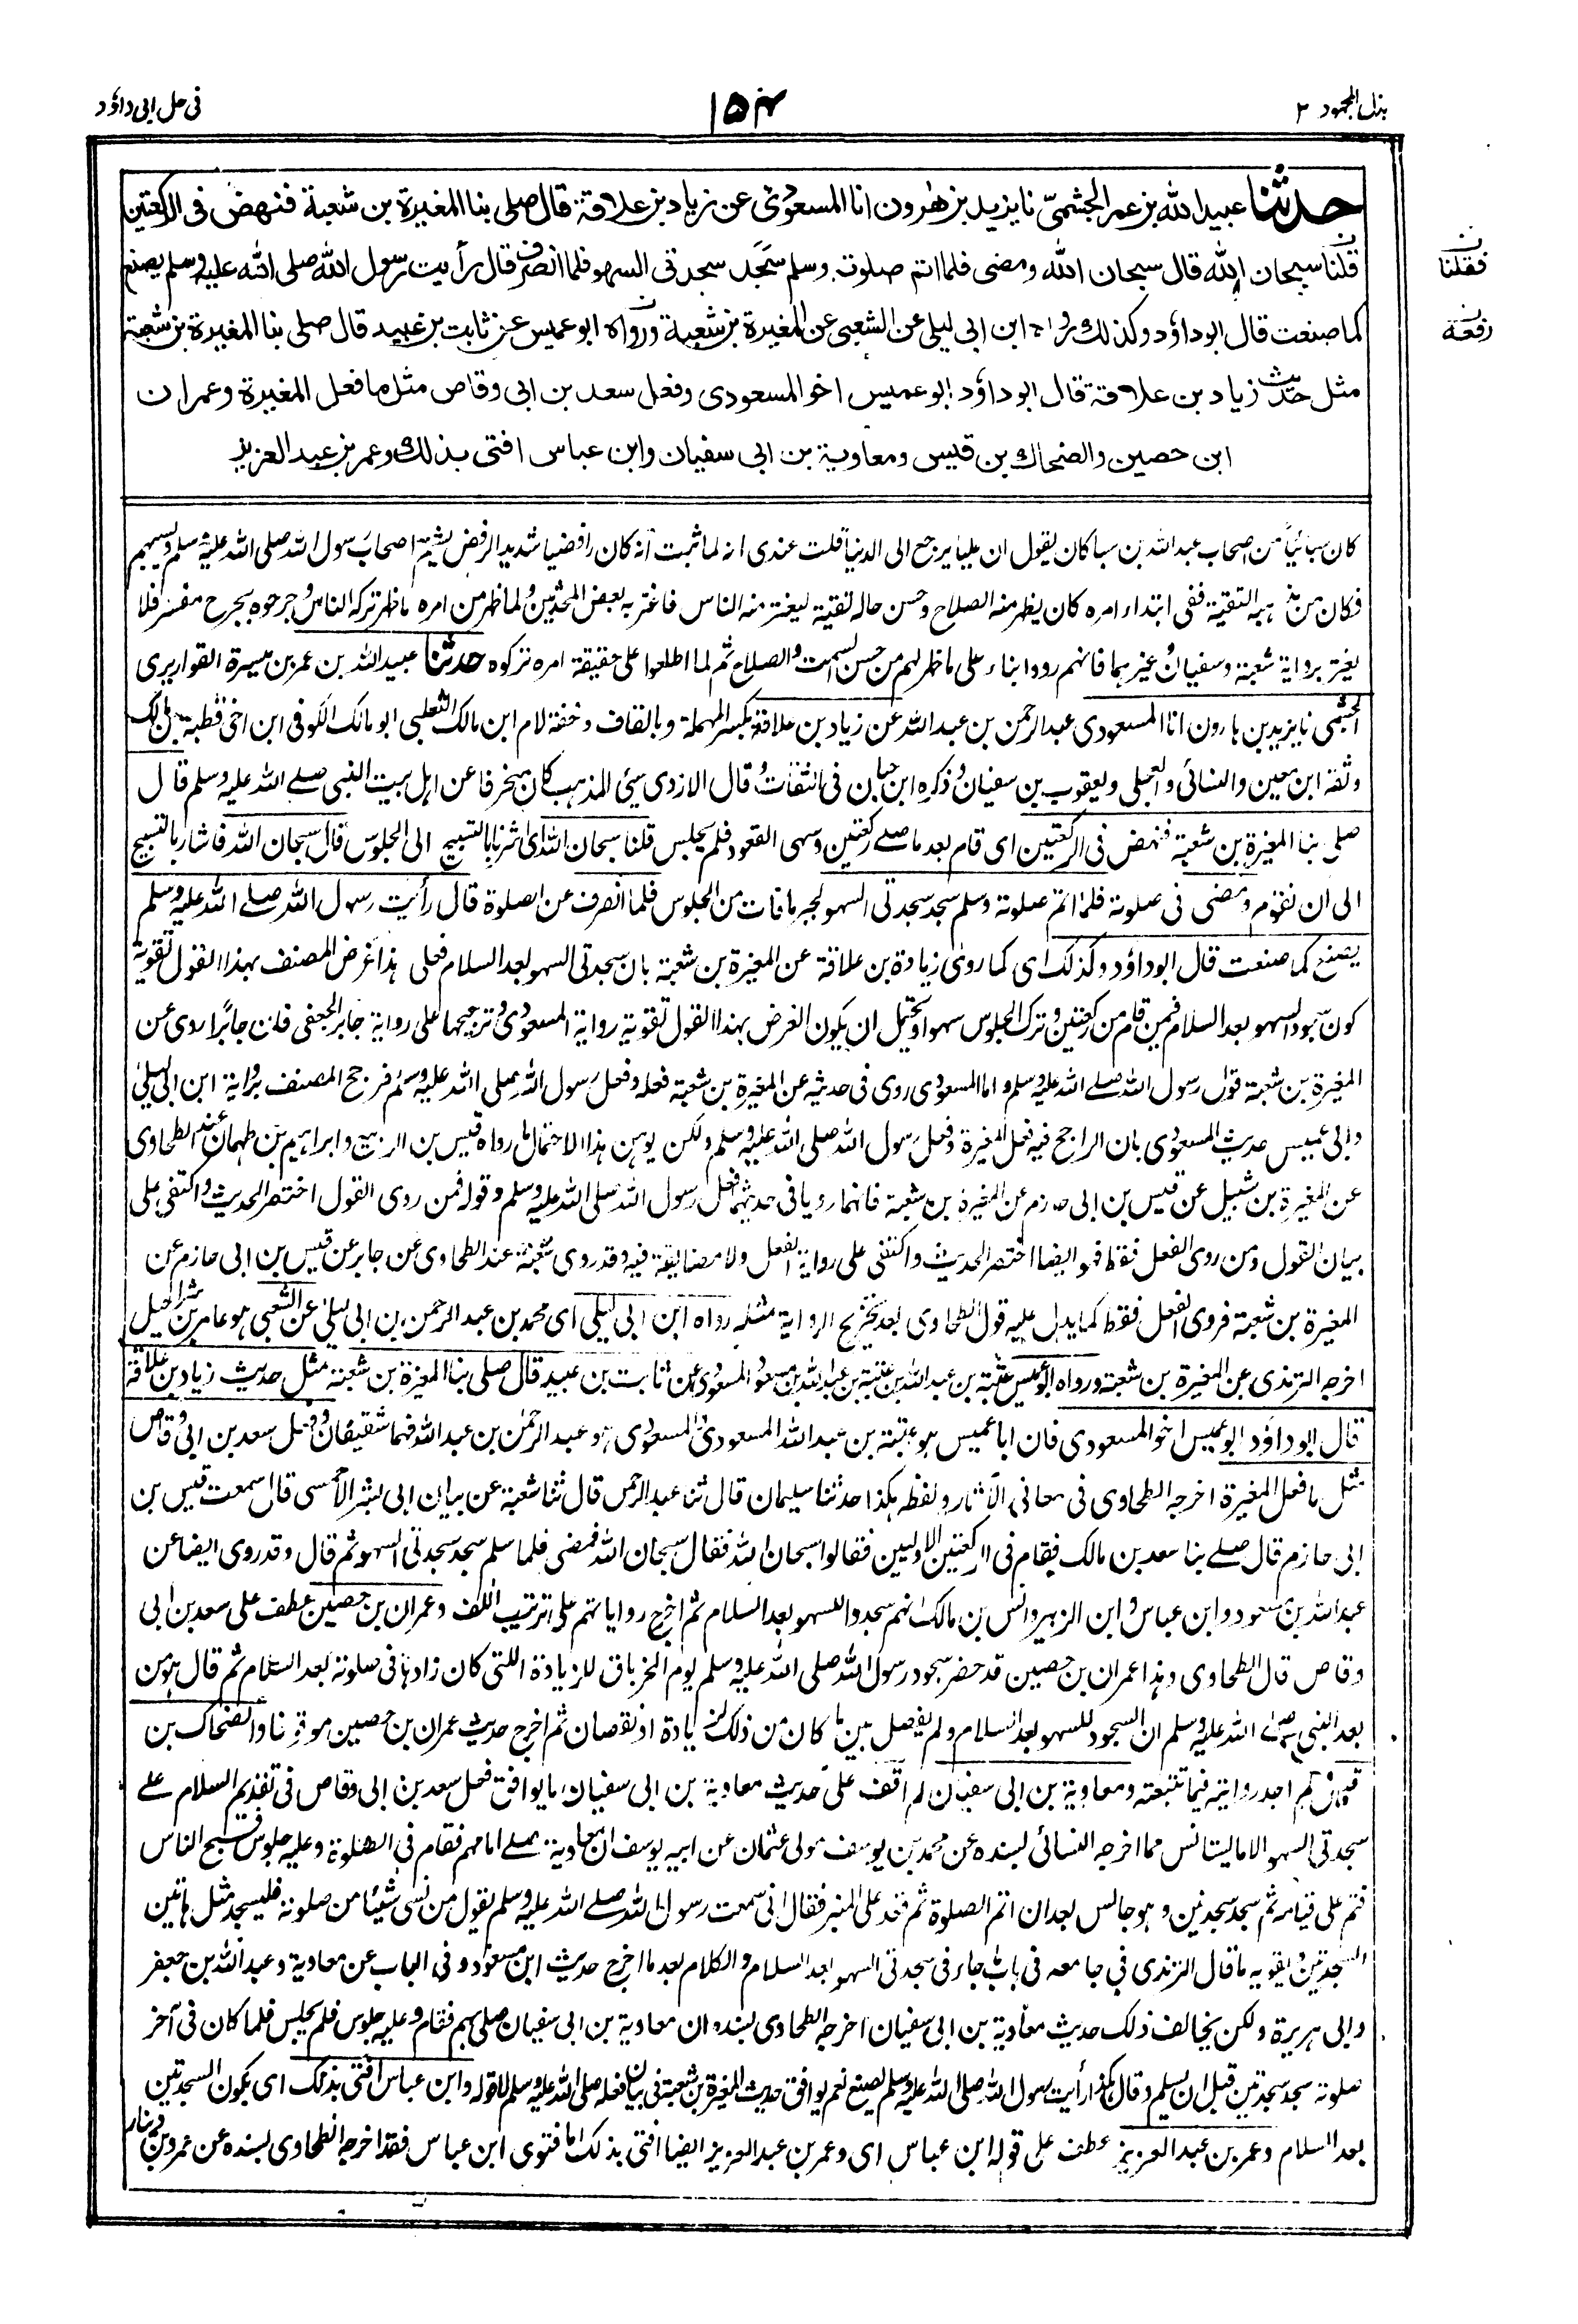 بذل المجهود ٢
١٥٤
فى حل ابى داؤد
حدثنا عبيد الله بن عمر الجشمىّ نا يزيد بن هٰرون انا المسعودى عن زياد بن علاقة قال صلى بنا المغيرة بن شعبة فنهض فى الركعتين
قلنا سبحان الله قال سبحان الله ومضى فلما اتم صلوته وسلم سَجَد سجدتى السهو فلما انصرف قال رأيت رسول الله صلى الله عليه وسلم يصنع
كما صنعت قال ابو داؤد وكذلك رواه ابن ابى ليلى عن الشعبى عن المغيرة بن شعبة ورواه ابو عميس عن ثابت بن عبيد قال صلى بنا المغيرة بن شعبة
مثل حديث زياد بن علاقة قال ابو داؤد ابو عميس اخو المسعودى وفعل سعد بن ابى وقاص مثل ما فعل المغيرة وعمران
ابن حصين والضحاك بن قيس ومعاوية بن ابى سفيان وابن عباس افتى بذلك وعمر بن عبد العزيز
فقلنا
رفعه
كان سبائيا من اصحاب عبد الله بن سبا كان يقول ان عليا يرجع الى الدنيا قلت عندى انه لما ثبت انه كان رافضيا شديد الرفض يشتم اصحاب رسول الله صلى الله عليه وسلم ويسبهم
فكان من مذهبه التقية ففى ابتداء امره كان يظهر منه الصلاح وحسن حاله تقية ليغتر منه الناس فاغتر به بعض المحدثين ولما ظهر من امره ما ظهر تركه الناس وجرحوه بجرح مفسر فلا
يغتر برواية شعبة وسفيان وغيرهما فانهم رووا بناء على ما ظهر لهم من حسن السمت والصلاح ثم لما اطلعوا على حقيقة امره تركوه حدثنا عبيد الله بن عمر بن ميسرة القواريرى
الجشمى نا يزيد بن هارون انا المسعودى عبد الرحمن بن عبد الله عن زياد بن علاقة بكسر المهملة وبالقاف وخفة لام ابن مالك الثعلبى ابو مالك الكوفى ابن اخى قطبة بن مالك
وثقه ابن معين والنسائى والعجلى ويعقوب بن سفيان وذكره ابن حبان فى الثقات وقال الازدى سيئ المذهب كان منحرفا عن اهل بيت النبى صلى الله عليه وسلم قال
صلى بنا المغيرة بن شعبة فنهض فى الركعتين اى قام بعد ما صلى ركعتين وسهى القعود فلم يجلس قلنا سبحان الله اى اشرنا بالتسبيح الى الجلوس قال سبحان الله فاشار بالتسبيح
الى ان نقوم ومضى فى صلوته فلما اتم صلوته وسلم سجد سجدتى السهو لجبر ما فات من الجلوس فلما انصرف عن الصلوة قال رأيت رسول الله صلى الله عليه وسلم
يصنع كما صنعت قال ابو داؤد وكذلك اى كما روى زيادة بن علاقة عن المغيرة بن شعبة بان سجدتى السهو بعد السلام فعلى هذا غرض المصنف بهذا القول تقوية
كون سجود السهو بعد السلام فيمن قام من ركعتين وترك الجلوس سهوا ويحتمل ان يكون الغرض بهذا القول تقوية رواية المسعودى وترجيحها على رواية جابر الجعفى فان جابرًا روى عن
المغيرة بن شعبة قول رسول الله صلى الله عليه وسلم واما المسعودى روى فى حديثه عن المغيرة بن شعبة فعله وفعل رسول الله صلى الله عليه وسلم فرجح المصنف برواية ابن ابى ليلى
وابى عميس حديث المسعودى بان الراجح فيه فعل المغيرة وفعل رسول الله صلى الله عليه وسلم ولكن يوهن هذا الاحتمال ما رواه قيس بن الربيع وابراهيم بن طهمان عند الطحاوى
عن المغيرة بن شبيل عن قيس بن ابى حازم عن المغيرة بن شعبة فانهما رويا فى حديثهما فعل رسول الله صلى الله عليه وسلم وقوله فمن روى القول اختصر الحديث واكتفى على
بيان القول ومن روى الفعل فقط فهو ايضا اختصر الحديث واكتفى على رواية الفعل ولا مضايقة فيه وقد روى شعبة عند الطحاوى عن جابر عن قيس بن ابى حازم عن
المغيرة بن شعبة فروى الفعل فقط كما يدل عليه قول الطحاوى بعد تخريج الرواية مثله رواه ابن ابى ليلى اى محمد بن عبد الرحمن بن ابى ليلى عن الشعبى هو عامر بن شراحيل
اخرجه الترمذى عن المغيرة بن شعبة ورواه ابو عميس عتبة بن عبد الله بن عتبة بن عبد الله بن مسعود المسعودى عن ثابت بن عبيد قال صلى بنا المغيرة بن شعبة مثل حديث زياد بن علاقة
قال ابو داؤد ابو عميس اخو المسعودى فان ابا عميس هو عتبة بن عبد الله المسعودى والمسعودى هو عبد الرحمٰن بن عبد الله فهما شقيقان وفعل سعد بن ابى وقاص
مثل ما فعل المغيرة اخرجه الطحاوى فى معانى الآثار ولفظه هكذا حدثنا سليمان قال ثنا عبد الرحمن قال ثنا شعبة عن بيان ابى بشر الاحمسى قال سمعت قيس بن
ابى حازم قال صلى بنا سعد بن مالك فقام فى الركعتين الاوليين فقالوا سبحان الله فقال سبحان الله فمضى فلما سلم سجد سجدتى السهو ثم قال وقد روى ايضا عن
عبد الله بن مسعود وابن عباس وابن الزبير وانس بن مالك انهم سجدوا للسهو بعد السلام ثم اخرج رواياتهم على ترتيب اللف وعمران بن حصين عطف على سعد بن ابى
وقاص قال الطحاوى وهذا عمران بن حصين قد حضر سجود رسول الله صلى الله عليه وسلم يوم الخرباق للزيادة اللتى كان زادها فى صلوته بعد السلام ثم قال هو من
بعد النبى صلى الله عليه وسلم ان السجود للسهو بعد السلام ولم يفصل بين ما كان من ذلك لزيادة او نقصان ثم اخرج حديث عمران بن حصين موقوفا والضحاك بن
قيس لم اجد روايته فيما تتبعته ومعاوية بن ابى سفيان لم اقف على حديث معاوية بن ابى سفيان ما يوافق فعل سعد بن ابى وقاص فى تقديم السلام على
سجدتى السهو الا ما يستانس مما اخرجه النسائى بسنده عن محمد بن يوسف مولى عثمان عن ابيه يوسف ان معاوية صلى امامهم فقام فى الصلوة وعليه جلوس فسبح الناس
فتم على قيامه ثم سجد سجدتين وهو جالس بعد ان اتم الصلوة ثم قعد على المنبر فقال انى سمعت رسول الله صلى الله عليه وسلم يقول من نسى شيئا من صلوته فليسجد مثل هاتين
السجدتين ويقويه ما قال الترمذى فى جامعه فى باب ما جاء فى سجدتى السهو بعد السلام والكلام بعد ما اخرج حديث ابن مسعود وفى الباب عن معاوية وعبد الله بن جعفر
وابى هريرة ولكن يخالف ذلك حديث معاوية بن ابى سفيان اخرجه الطحاوى بسنده ان معاوية بن ابى سفيان صلى بهم فقام وعليه جلوس فلم يجلس فلما كان فى آخر
صلوته سجد سجدتين قبل ان يسلم وقال هكذا رأيت رسول الله صلى الله عليه وسلم يصنع نعم يوافق حديث المغيرة بن شعبة فى بيان فعله صلى الله عليه وسلم لا قوله وابن عباس افتى بذلك اى بكون السجدتين
بعد السلام وعمر بن عبد العزيز عطف على قوله ابن عباس اى وعمر بن عبد العزيز ايضا افتى بذلك اما فتوى ابن عباس فقد اخرجه الطحاوى بسنده عن عمرو بن دينار